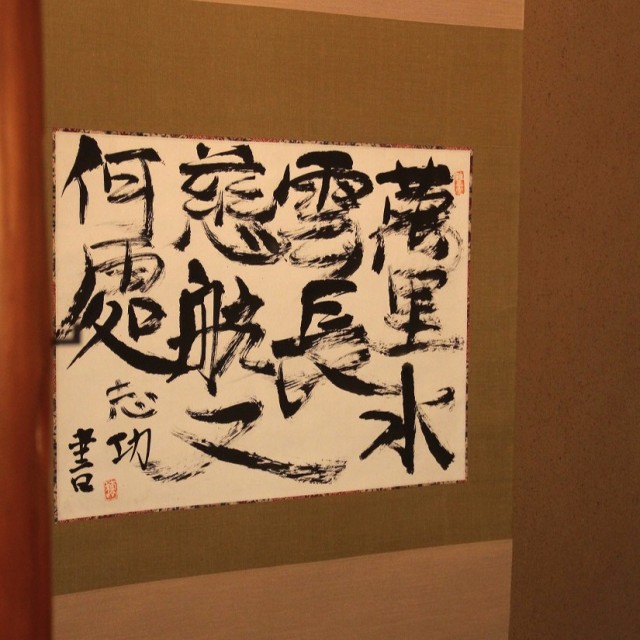 萬里水
雲長
慈航之
何處
志功
書